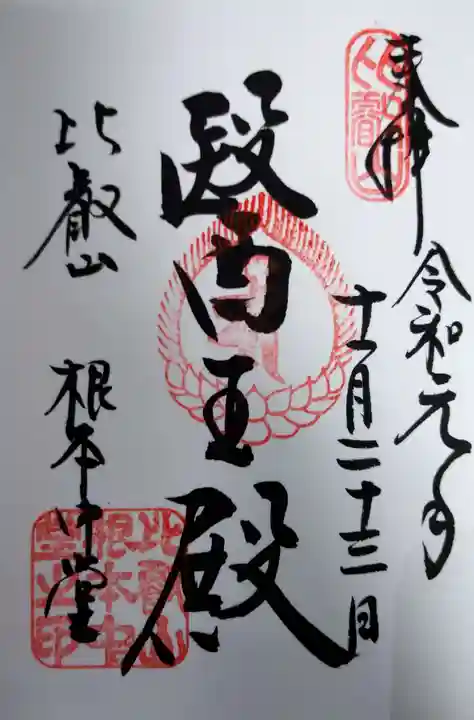 奉拝
比叡山
令和元年
十一月二十三日
醫王殿
比叡山 根本中堂
比叡山
根本中
堂之印